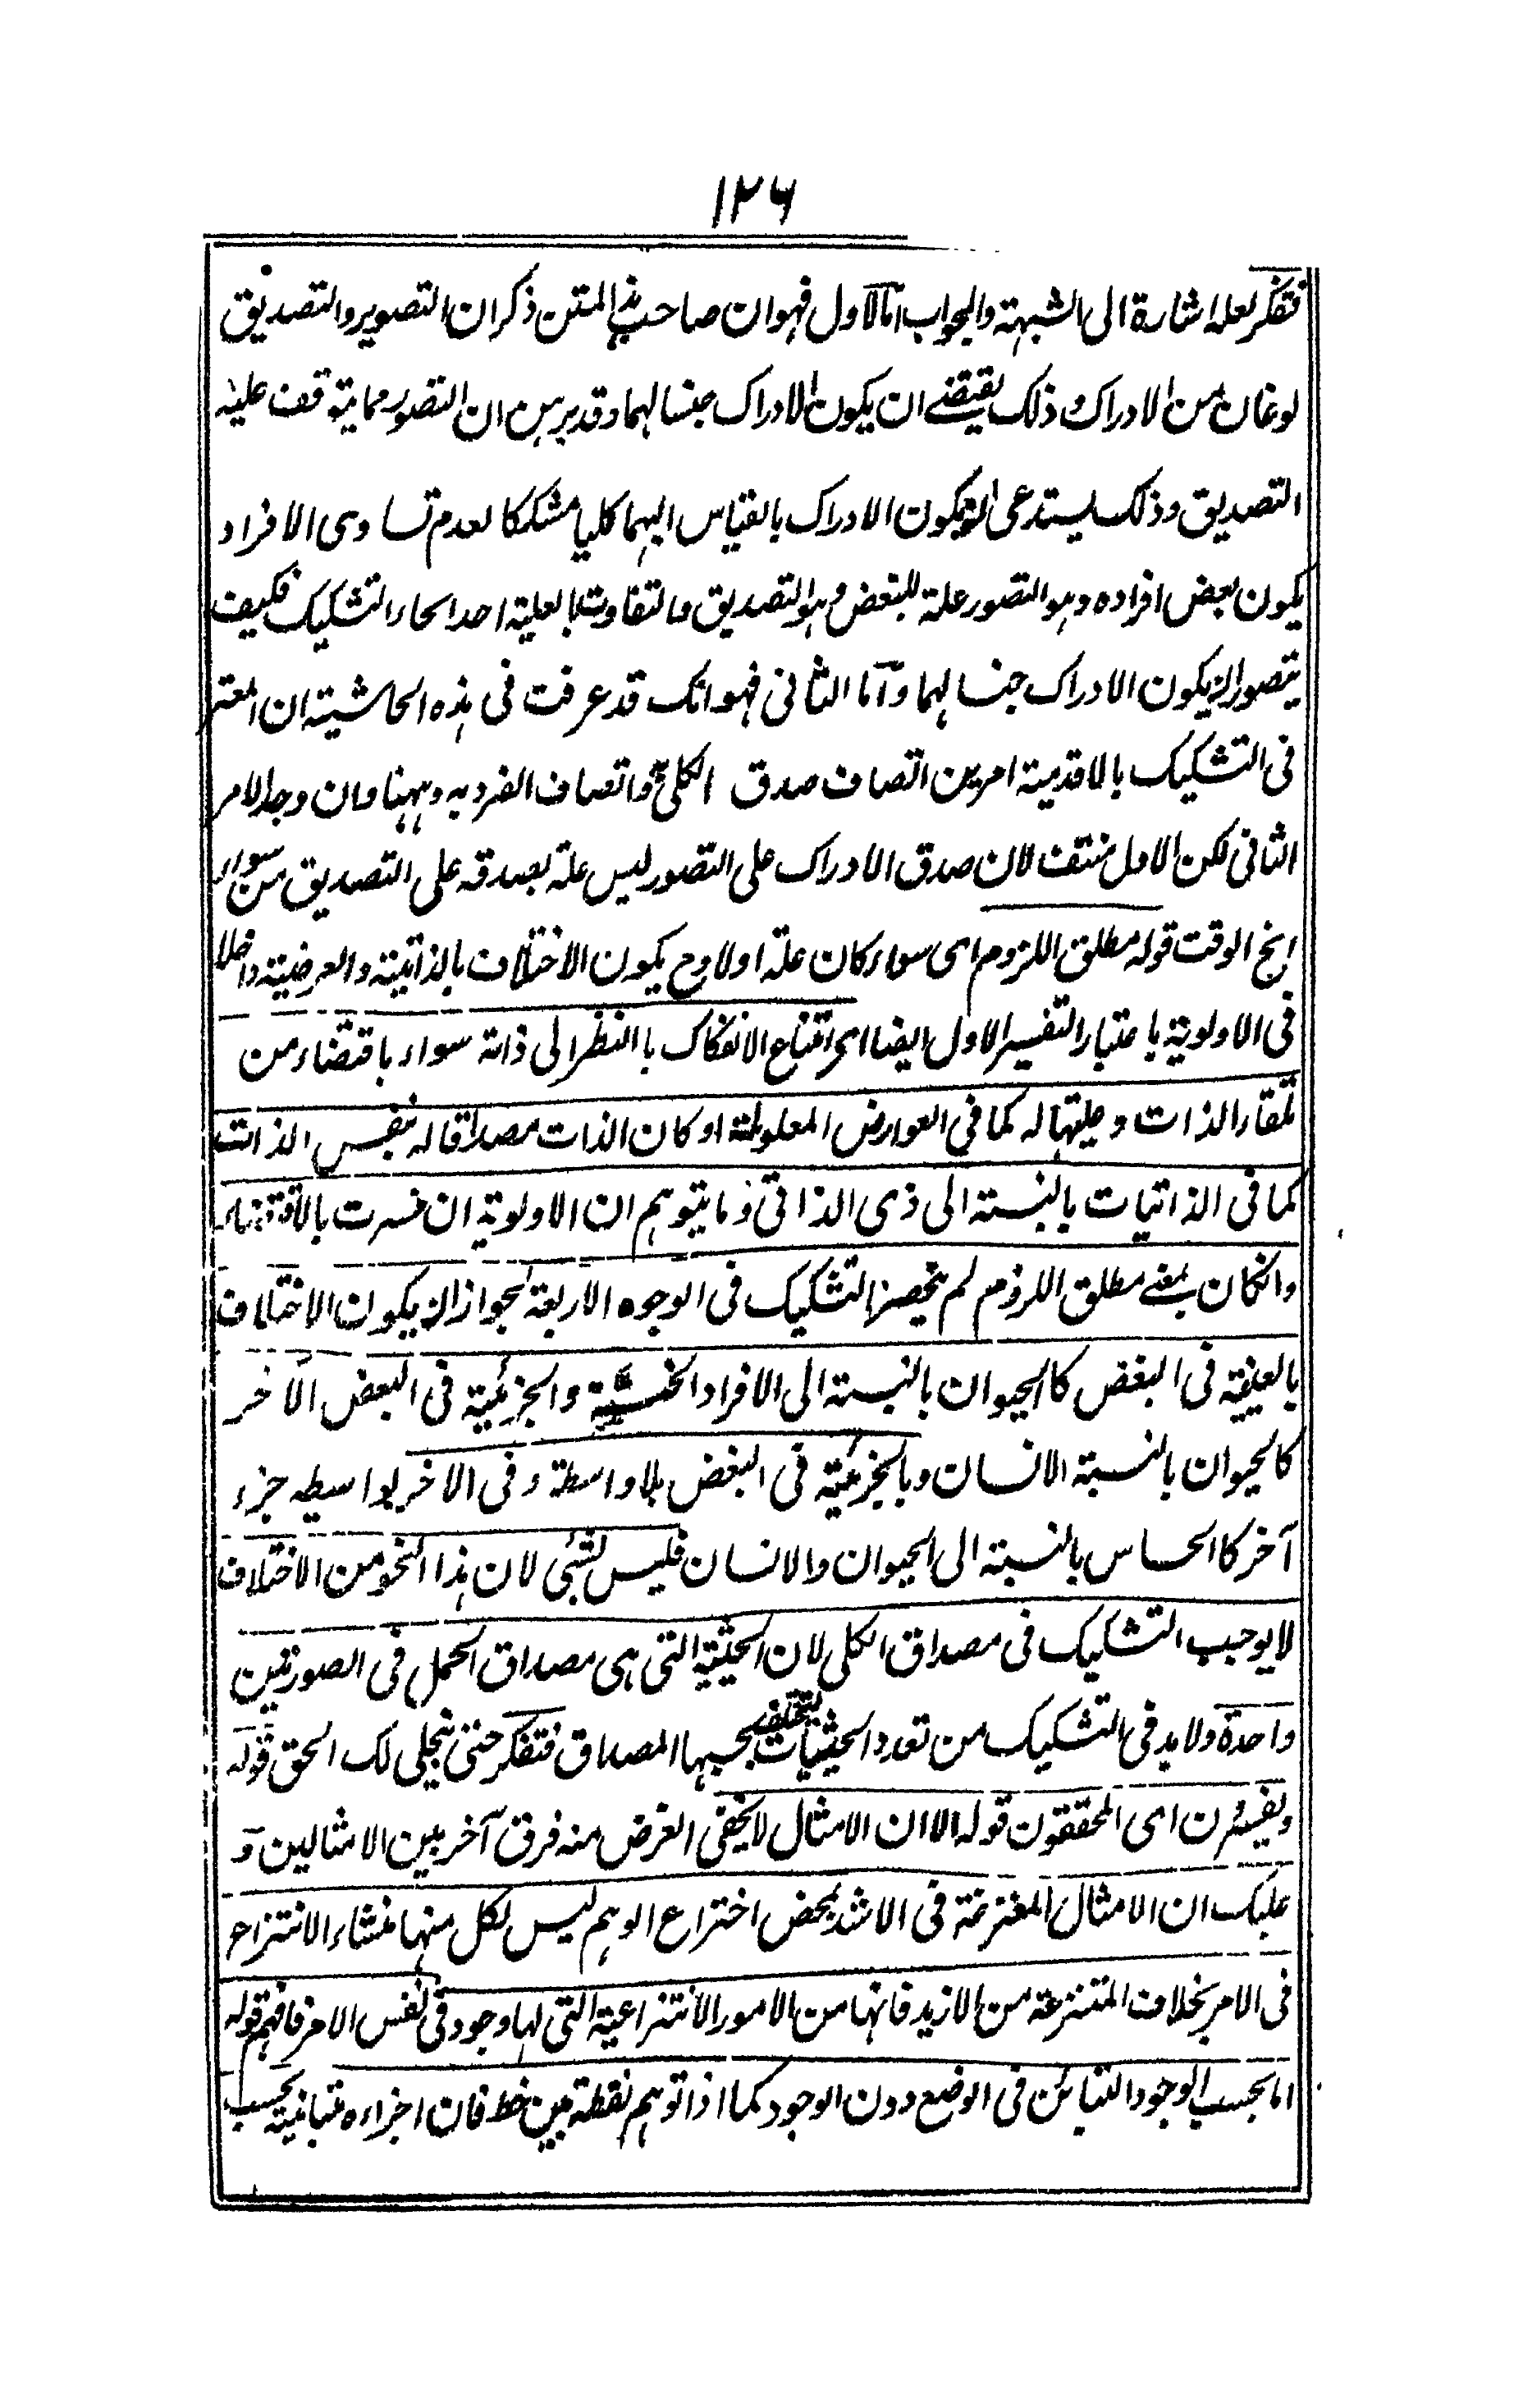 ١٢٦
فتفكر لعله اشارة الى الشبهة والجواب اما الاول فهو ان صاحب هذا المتن ذكر ان التصوير والتصديق
نوعان من الادراك وذلك يقتضي ان يكون الادراك جنسا لهما وقد برهن ان التصور مما يتوقف عليه
التصديق وذلك يستدعى ان يكون الادراك بالقياس اليهما كليا مشككا لعدم تساوى الافراد
يكون بعض افراده وهو التصور علة للبعض وهو التصديق والتفاوت بالعلية احد انحاء التشكيك فكيف
يتصور ان يكون الادراك جنسا لهما وآما الثانى فهو انك قد عرفت فى هذه الحاشية ان المعتبر
فى التشكيك بالاقدمية امرين اتصاف صدق الكلى واتصاف الفرد به وههنا وان وجد الامر
الثانى لكن الاول منتف لان صدق الادراك على التصور ليس علة لصدقه على التصديق من سواء
الخ الوقت قوله مطلق اللزوم اى سواء كان علة اولا وح يكون الاختلاف بالذاتية والعرضية داخلا
فى الاولوية باعتبار التفسير الاول ايضا اى امتناع الانفكاك بالنظر الى ذاته سواء باقتضاء من
تلقاء الذات وعليتها له كما في العوارض المعلولة او كان الذات مصداقا له بنفس الذات
كما فى الذاتيات بالنسبة الى ذى الذاتى وما يتوهم ان الاولوية ان فسرت بالاقتضاء
وانكان بمعنے مطلق اللزوم لم ينحصر التشكيك فى الوجوه الاربعة لجواز ان يكون الاختلاف
بالعينية فى البعض كالحيوان بالنسبة الى الافراد الحصية والجزئية فى البعض الآخر
كالحيوان بالنسبة الانسان وبالجزئية فى البعض بلا واسطة وفى الاخر بواسطه جزء
آخر كالحساس بالنسبة الى الحيوان والانسان فليس بشئ لان هذا النحو من الاختلاف
لا يوجب التشكيك فى مصداق الكلى لان الحيثية التى هى مصداق الحمل فى الصورتين
واحدة ولابد فى التشكيك من تعدد الحيثيات يختلف بحسبها المصداق فتفكر حتى ينجلى لك الحق قوله
ويفسرن اى المحققون قوله الا ان الامثال لا يخفى الغرض منه فرق آخر بين الامثالين و
عليك ان الامثال المنتزعة فى الاشد بمحض اختراع الوهم ليس لكل منها منشاء الانتزاع
فى الامر بخلاف المنتزعة من الازيد فانها من الامور الانتزاعية التى لها وجود فى نفس الامر فافهم قوله
اما بحسب الوجود التبائن فى الوضع دون الوجود كما اذا توهم نقطة بين خط فان اجزاءه متبائنة بحسب